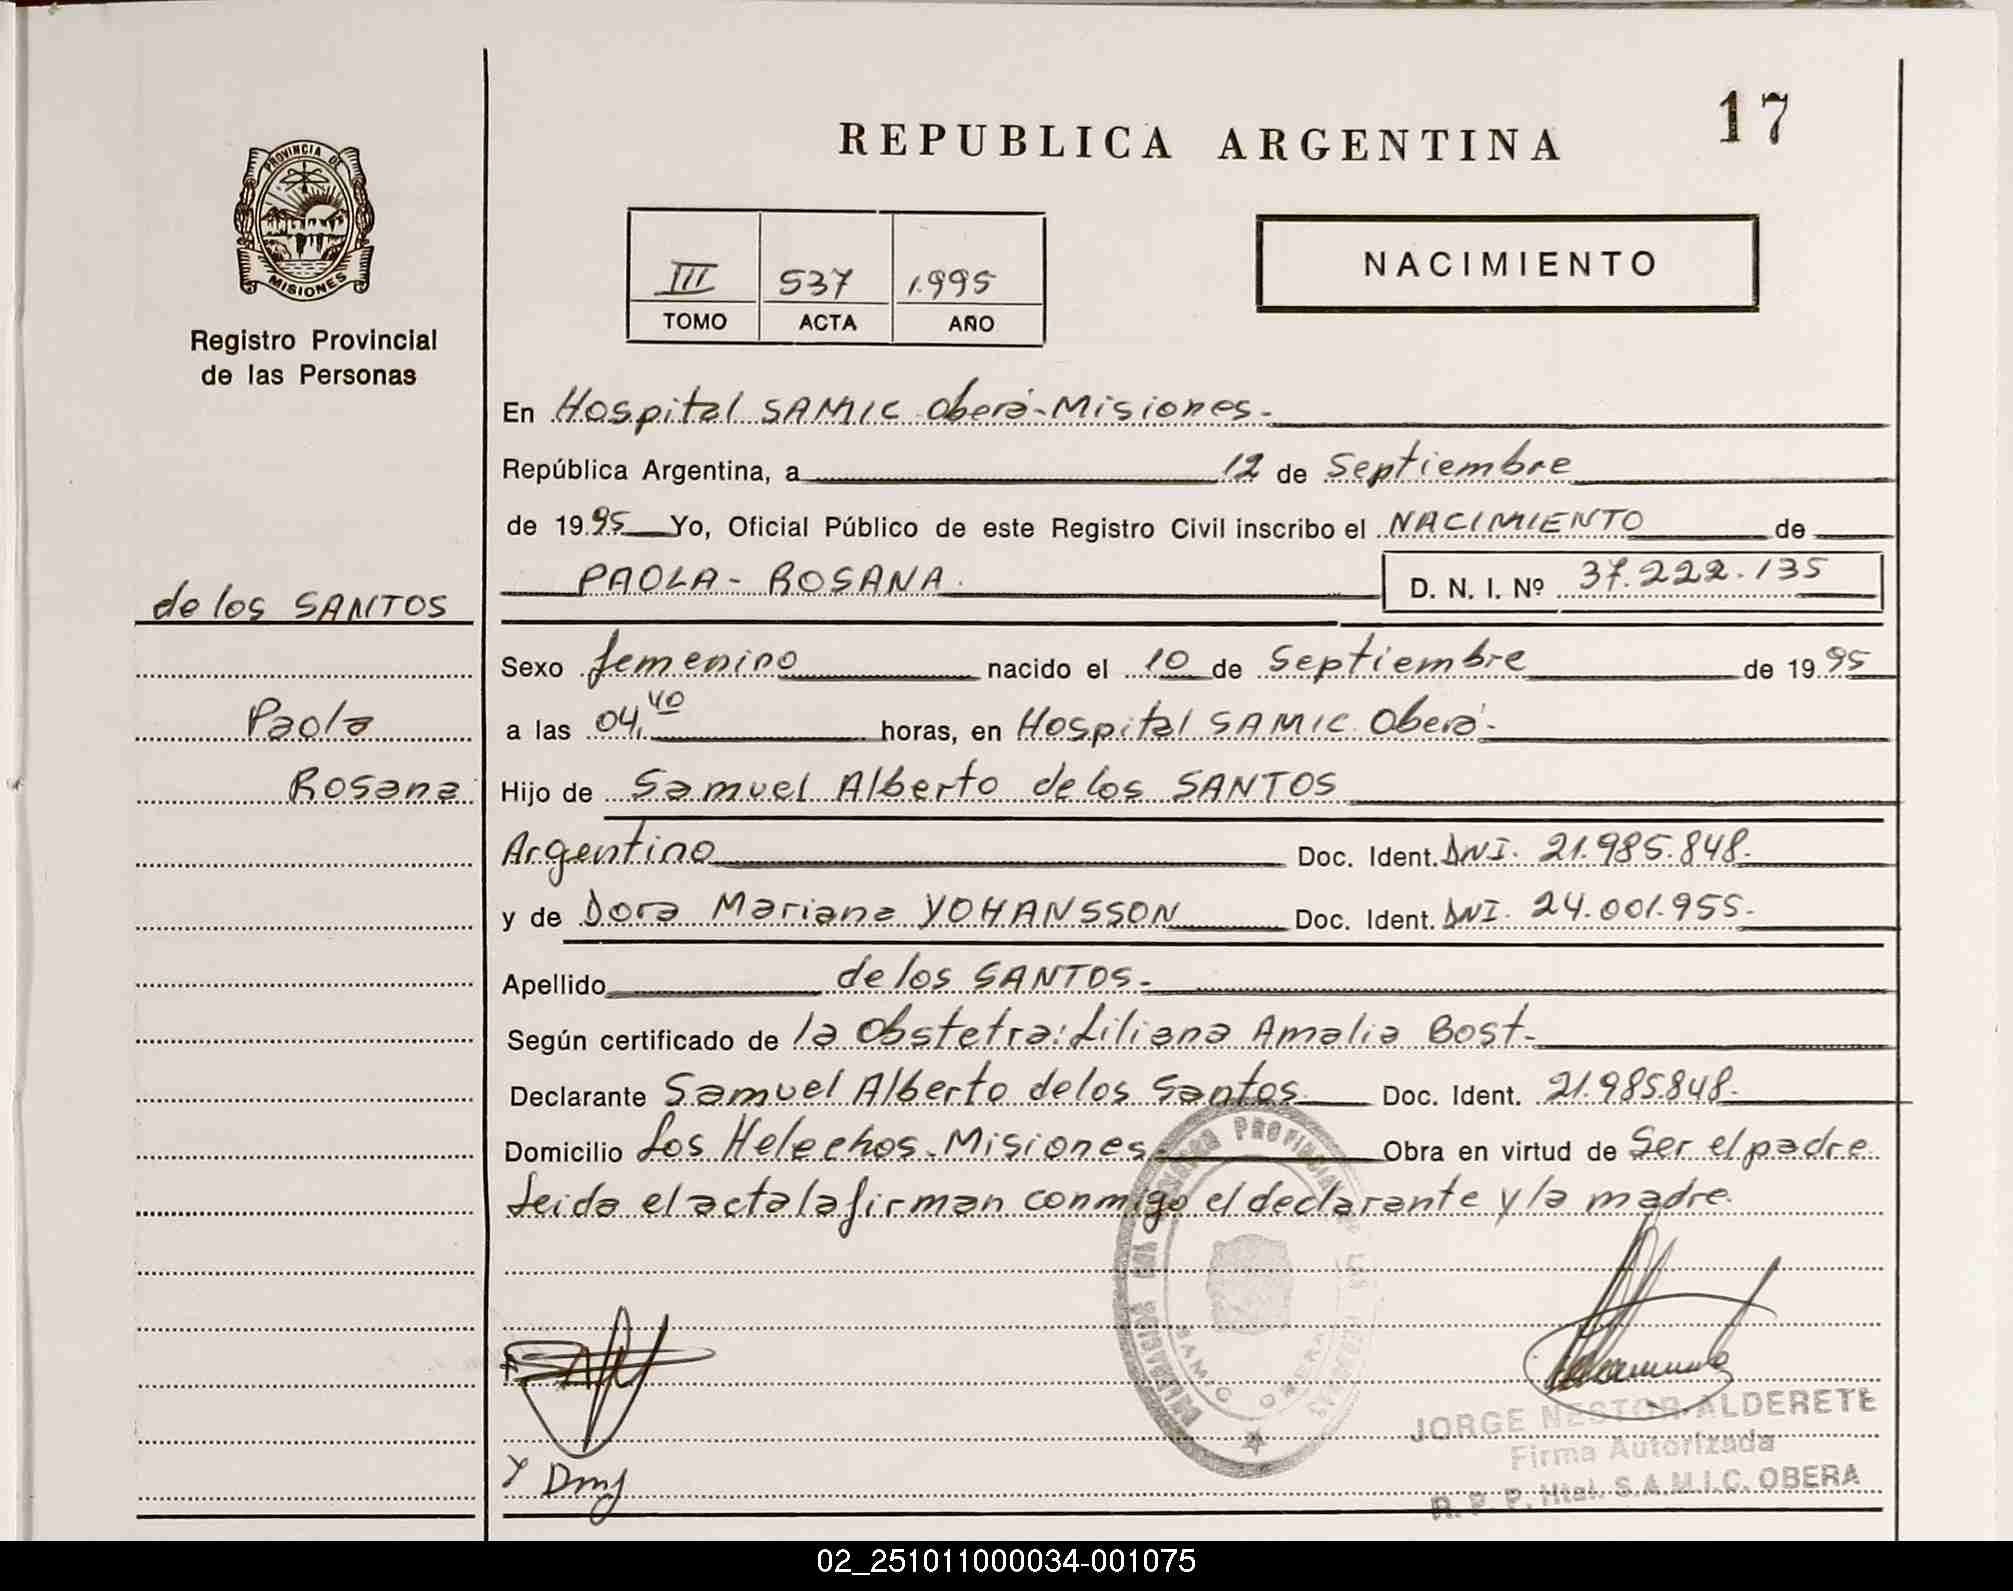 REPUBLICA ARGENTINA
17
PROVINCIA DE
MISIONES
Registro Provincial
de las Personas
III 537 1.995
TOMO ACTA AÑO
NACIMIENTO
En Hospital SAMIC Oberá-Misiones.
República Argentina, a 12 de Septiembre
de 1995 Yo, Oficial Público de este Registro Civil inscribo el NACIMIENTO de
PAOLA - ROSANA. D. N. I. Nº 37.222.135
de los SANTOS
Paola
Rosana
Sexo femenino nacido el 10 de Septiembre de 1995
a las 04,40 horas, en Hospital SAMIC Oberá-
Hijo de Samuel Alberto de los SANTOS
Argentino Doc. Ident. DNI. 21.985.848-
y de Dora Mariana YOHANSSON Doc. Ident. DNI. 24.001.955-
Apellido de los SANTOS-
Según certificado de la Obstetra: Liliana Amalia Bost-
Declarante Samuel Alberto de los Santos Doc. Ident. 21.985.848-
Domicilio Los Helechos-Misiones Obra en virtud de Ser el padre
Leida el acta la firman conmigo el declarante y la madre.
SAMIC OBERA
JORGE NESTOR ALDERETE
Firma Autorizada
R. P. P. Htal. S.A.M.I.C. OBERA
02_251011000034-001075